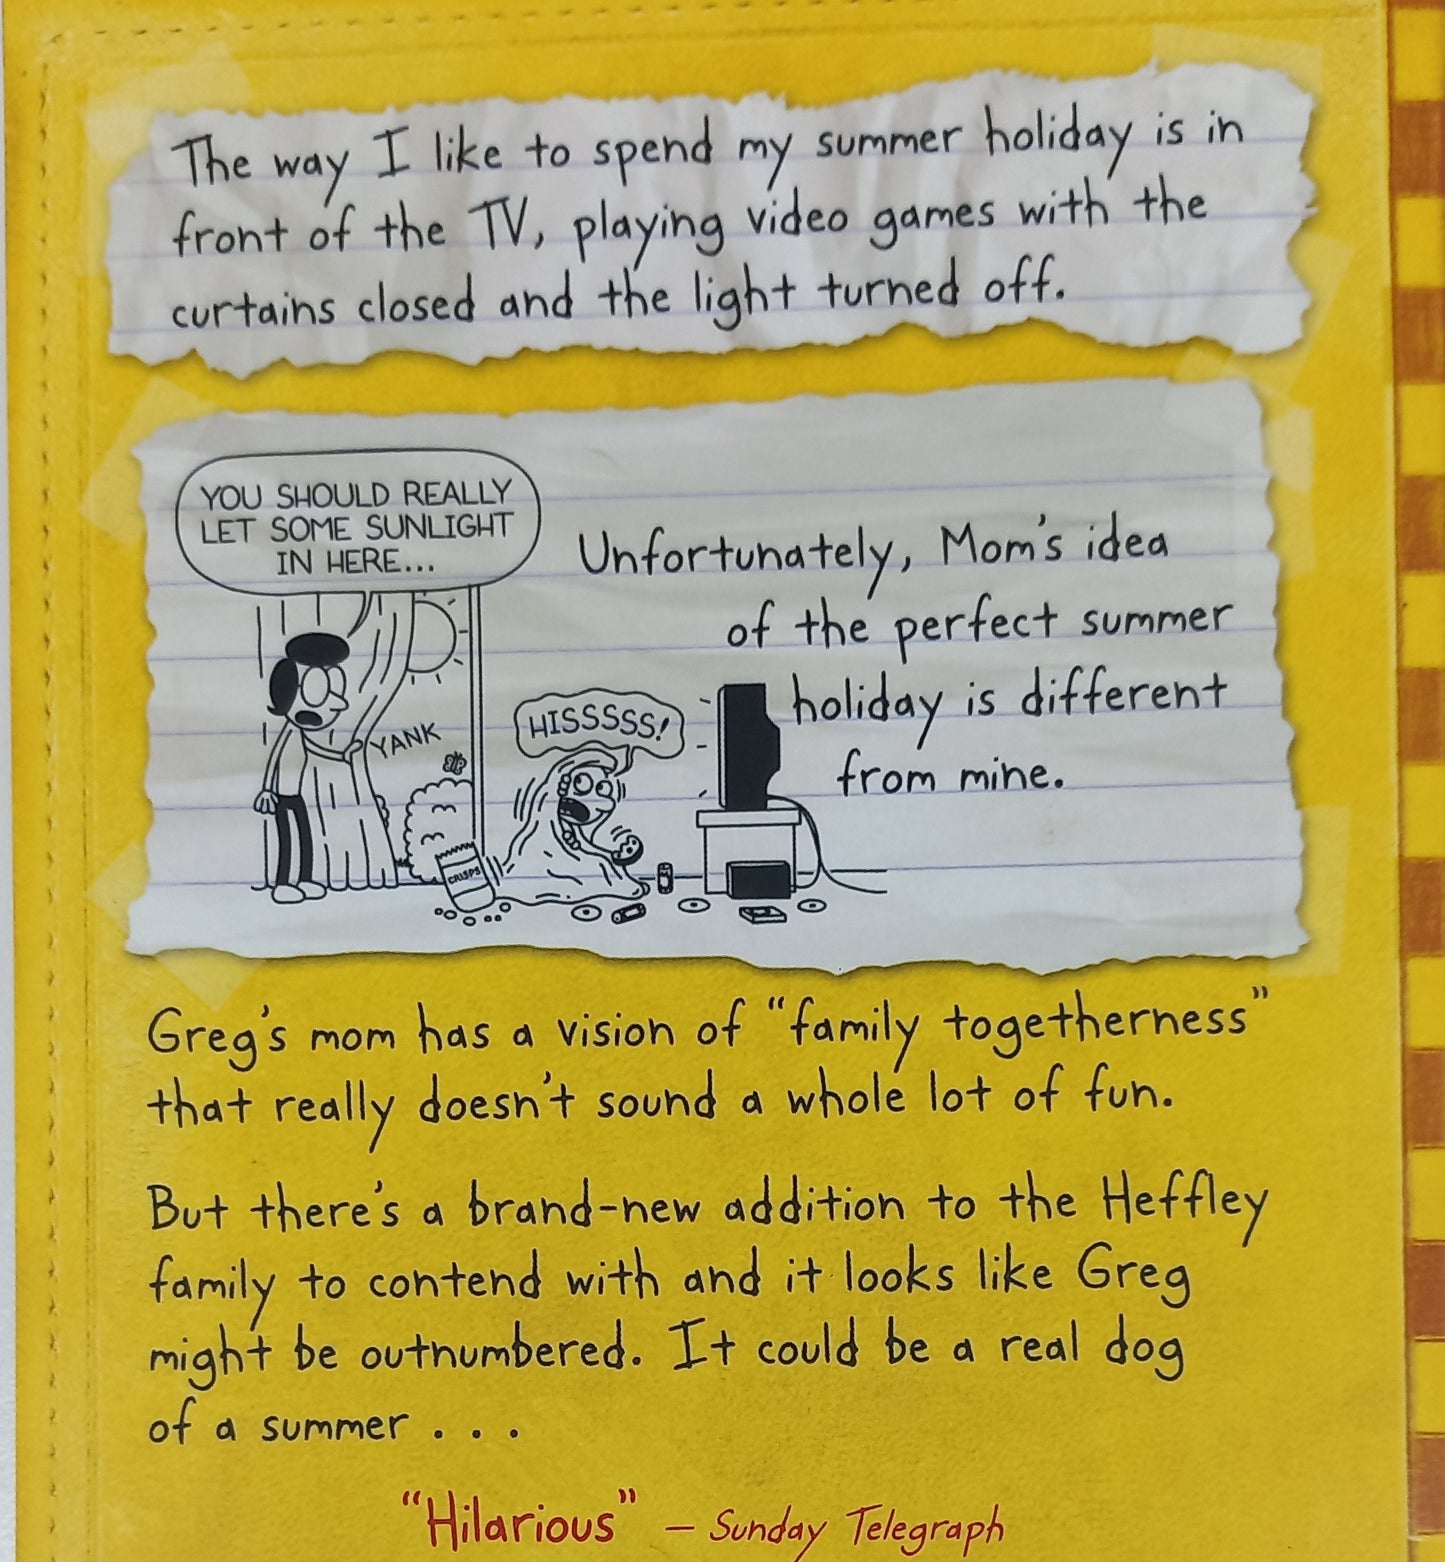 The way I like to spend my summer holiday is in
front of the TV, playing video games with the
curtains closed and the light turned off.
YOU SHOULD REALLY
LET SOME SUNLIGHT
IN HERE...
Unfortunately, Mom's idea
of the perfect summer
holiday is different
from mine.
YANK
HISSSSS!
CRISPS
Greg's mom has a vision of "family togetherness"
that really doesn't sound a whole lot of fun.
But there's a brand-new addition to the Heffley
family to contend with and it looks like Greg
might be outnumbered. It could be a real dog
of a summer . . .
"Hilarious" – Sunday Telegraph